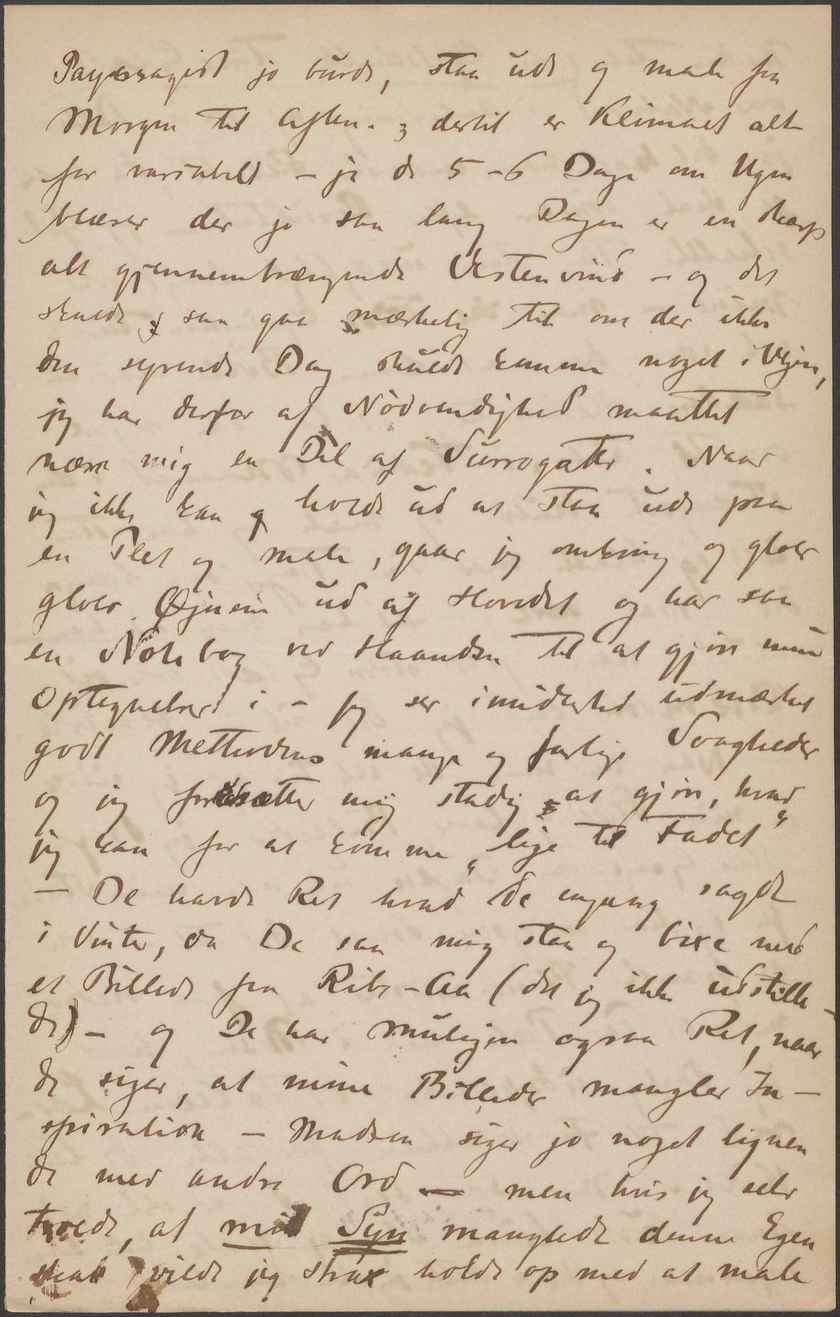 Paysagist jo burde, staa ude og male fra
Morgen til Aften. dertil er Klimaet alt
for variabelt – ja de 5–6 Dage om Ugen
blæser der jo saa lang Dagen er en skarp
alt gjennemtrængende Vestenvind – og det
skulde saa gaa mærkelig til om der ikke
den syvende Dag skulde komme noget i Vejen,
jeg har derfor af Nødvendighed maattet
nære mig en Del af Surrogatter. Naar
jeg ikke kan holde ud at staa ude paa
en Plet og male, gaar jeg omkring og gloer
gloer Øjnene ud af Hovedet og har saa
en Notebog ved Haanden til at gjøre mine
Optegnelser i – jeg ser imidlertid udmærket
godt Methodens mange og farlige Svagheder
og jeg forsætter mig stadig at gjøre, hvad
jeg kan for at komme „lige til Fadet"
– De havde Ret hvad De engang sagde
i Vinter, da De saa mig staa og bixe med
et Billede fra Ribe-Aa (det jeg ikke udstille-
de) – og De har muligen ogsaa Ret, naar
De siger, at mine Billeder mangler In-
spiration – Madsen siger jo noget lignen
de med andre Ord – men hvis jeg selv
troede, at mit Syn manglede denne Egen
skab vilde jeg strax holde op med at male